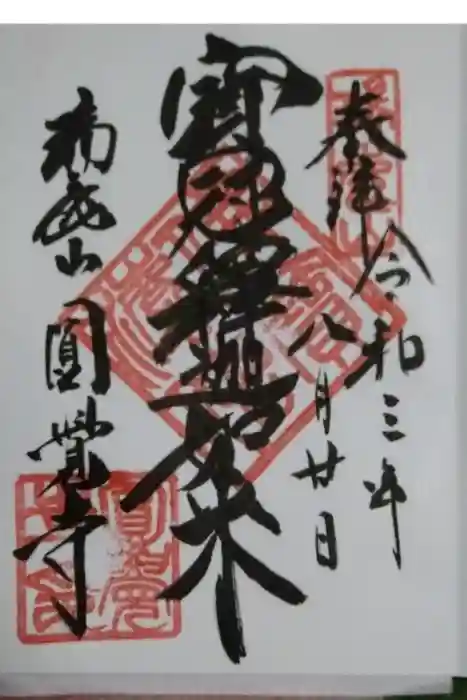 奉拝
令和三年
八月廿日
寶冠釋迦如来
瑞鹿山
圓覺寺